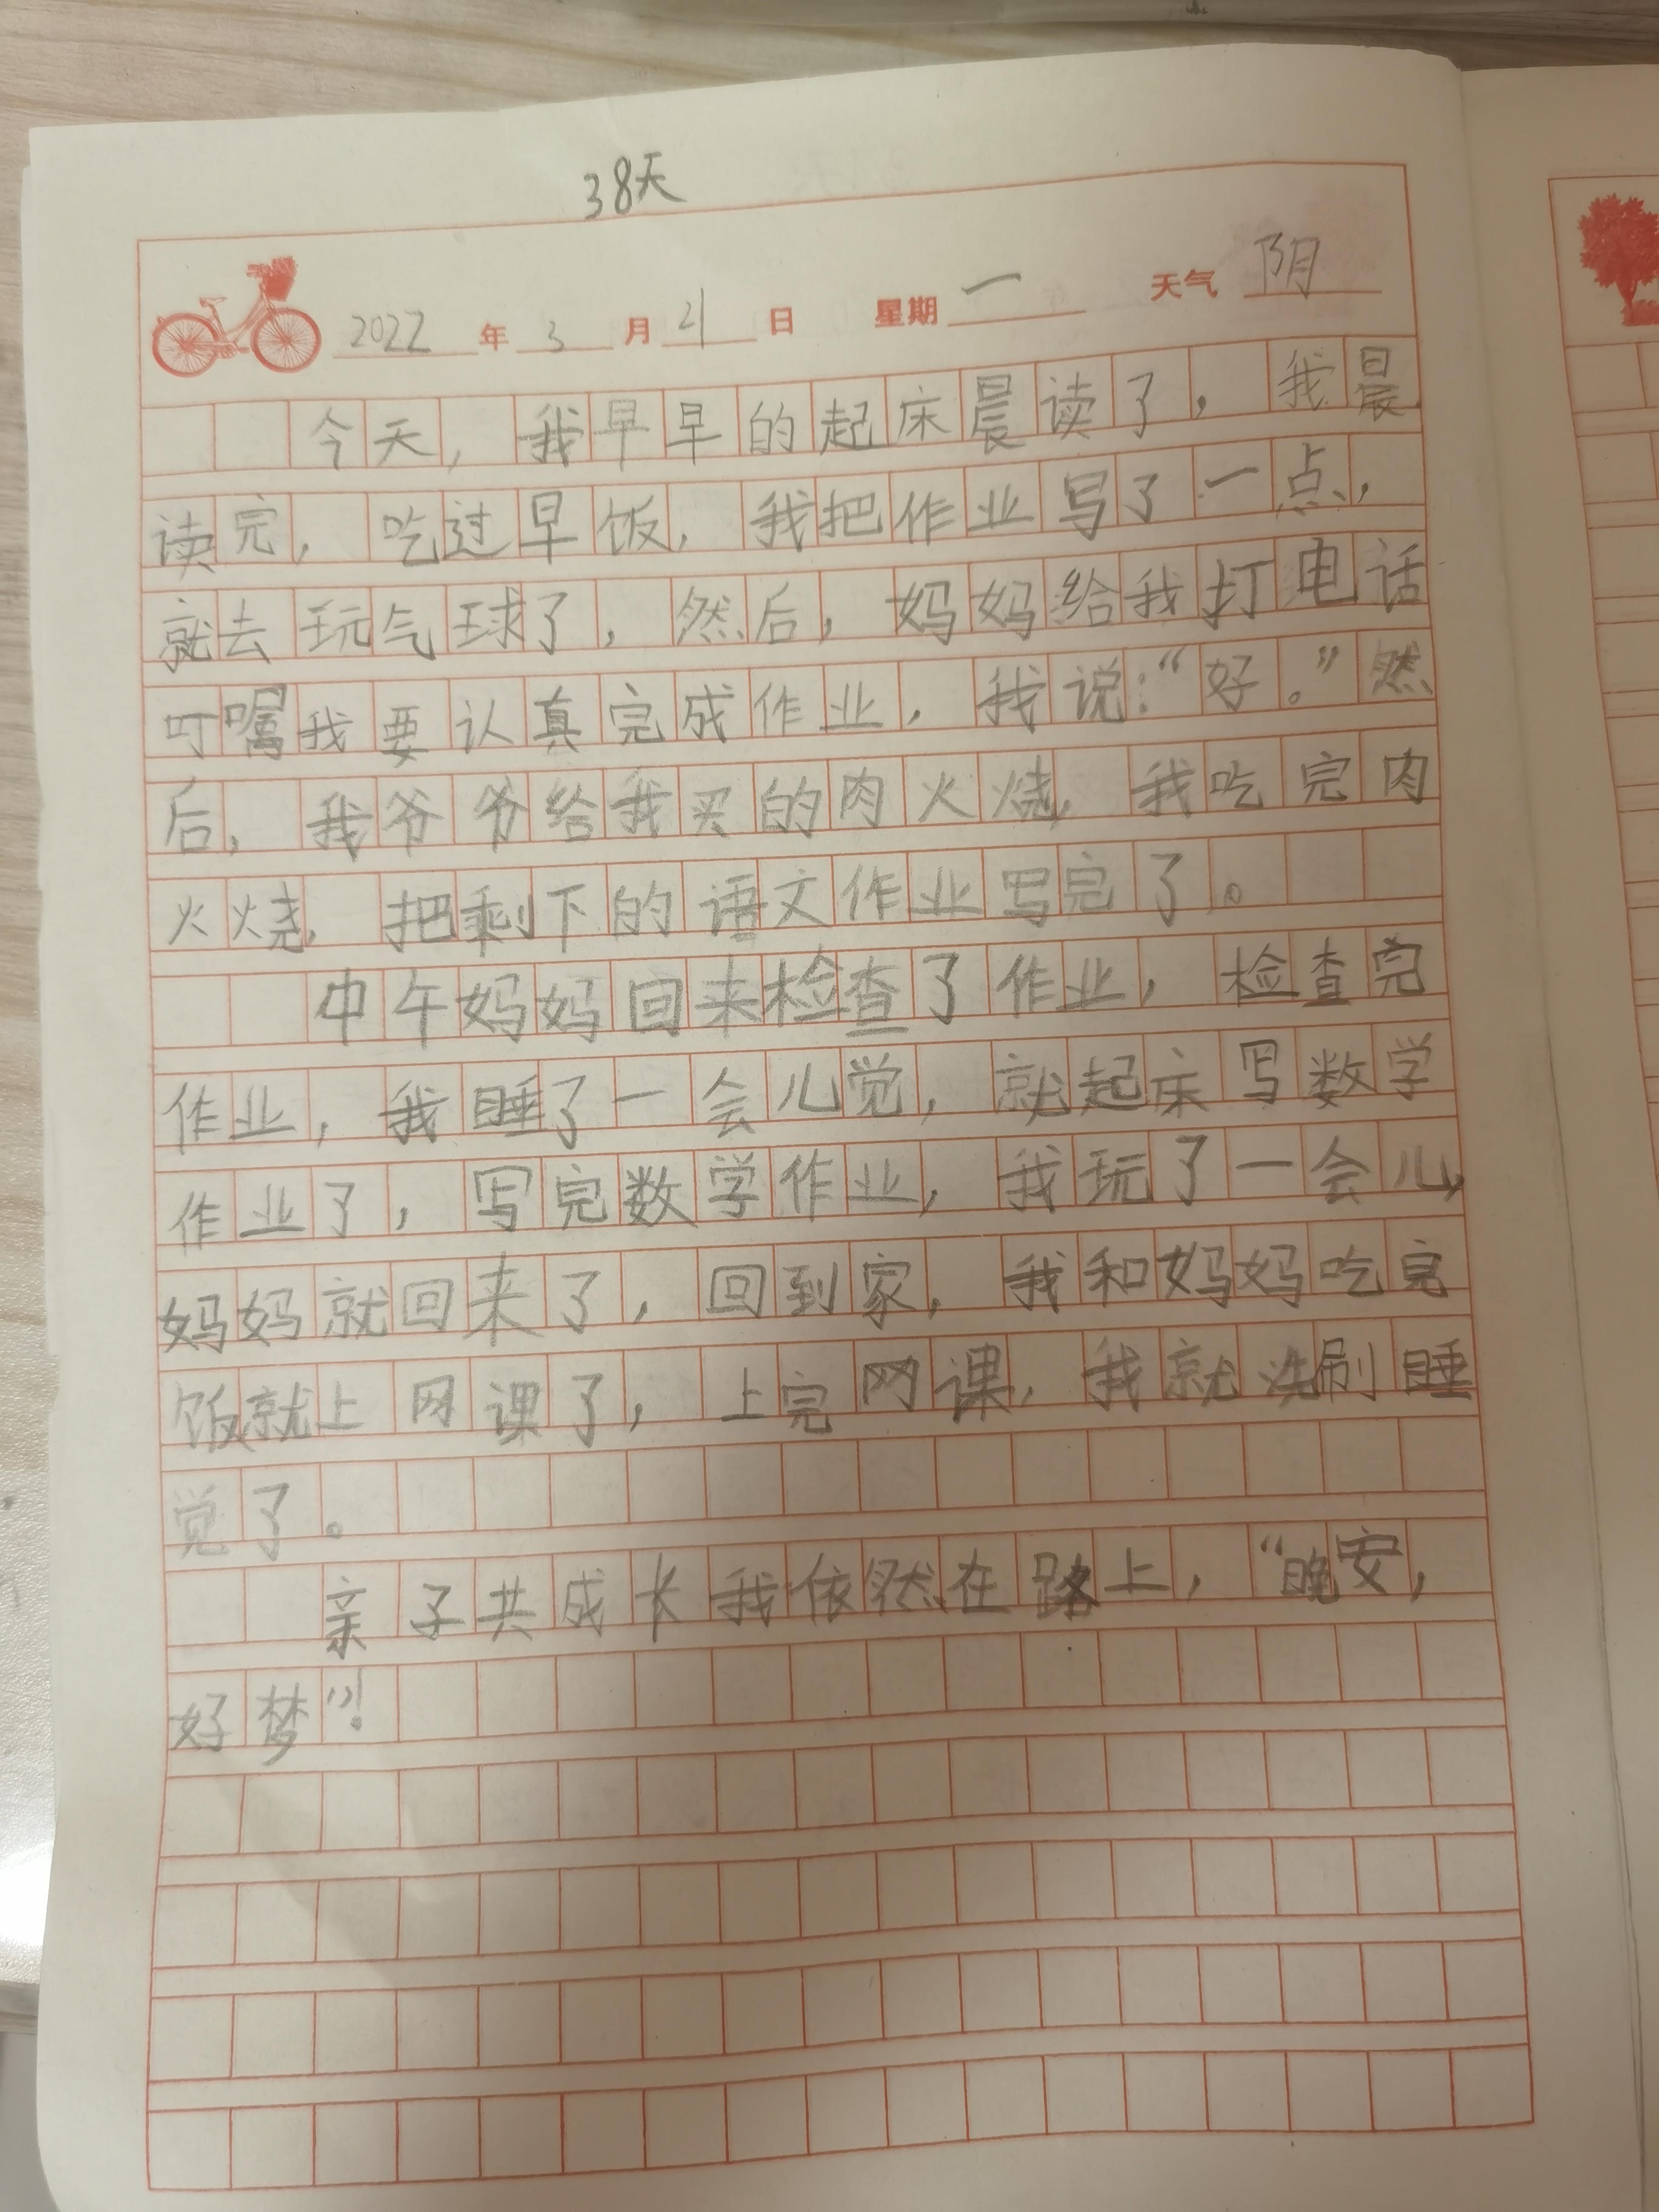 38天
2022年3月21日 星期一 天气阴
今天,我早早的起床晨读了,我晨
读完,吃过早饭,我把作业写了一点,
就去玩气球了,然后,妈妈给我打电话
叮嘱我要认真完成作业,我说:“好。”然
后,我爷爷给我买的肉火烧,我吃完肉
火烧,把剩下的语文作业写完了。
中午妈妈回来检查了作业,检查完
作业,我睡了一会儿觉,就起床写数学
作业了,写完数学作业,我玩了一会儿,
妈妈就回来了,回到家,我和妈妈吃完
饭就上网课了,上完网课,我就洗刷睡
觉了。
亲子共成长我依然在路上,“晚安,
好梦”!